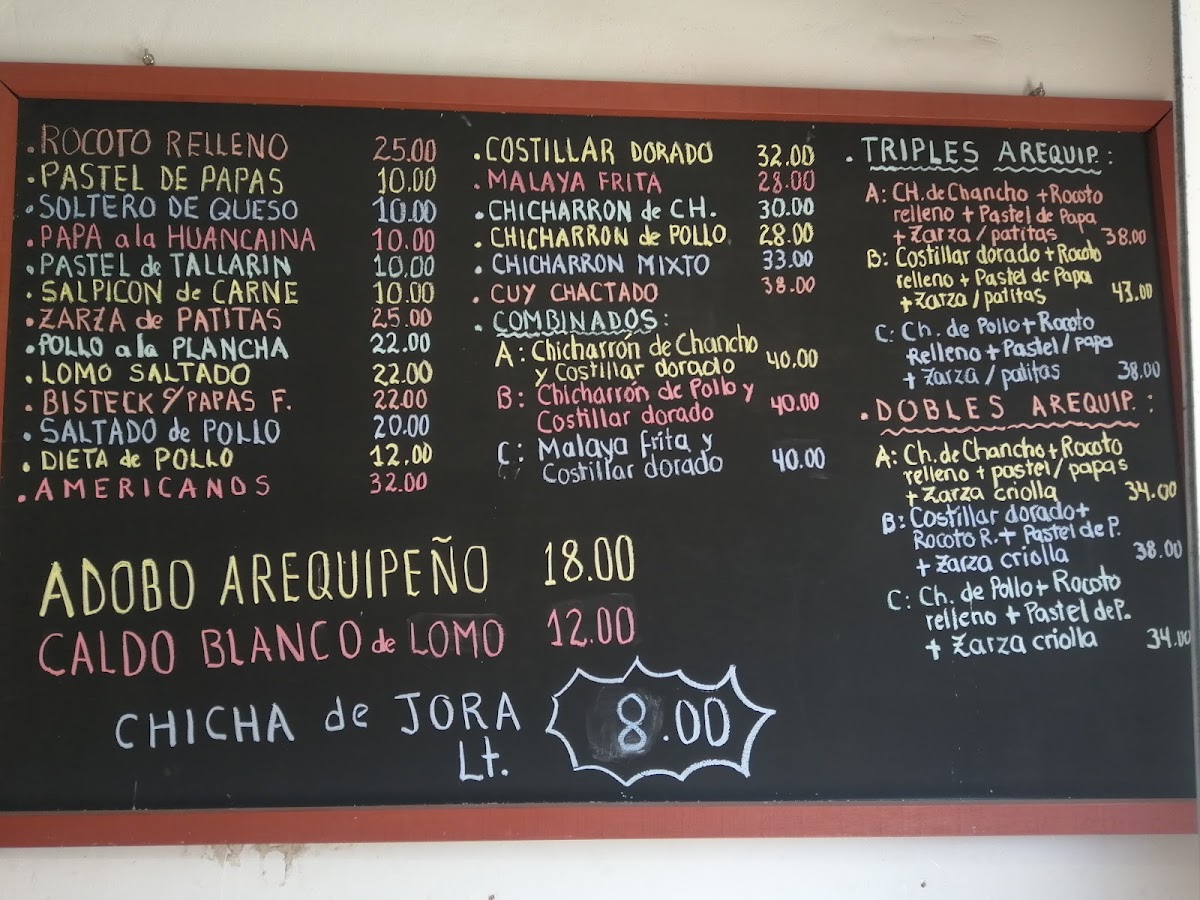 .ROCOTO RELLENO 25.00
.PASTEL DE PAPAS 10.00
.SOLTERO DE QUESO 10.00
.PAPA a la HUANCAINA 10.00
.PASTEL de TALLARIN 10.00
.SALPICON de CARNE 10.00
.ZARZA de PATITAS 25.00
.POLLO a la PLANCHA 22.00
.LOMO SALTADO 22.00
.BISTECK c/PAPAS F. 22.00
.SALTADO de POLLO 20.00
.DIETA de POLLO 12.00
.AMERICANOS 32.00
.COSTILLAR DORADO 32.00
.MALAYA FRITA 28.00
.CHICHARRON de CH. 30.00
.CHICHARRON de POLLO 28.00
.CHICHARRON MIXTO 33.00
.CUY CHACTADO 38.00
.COMBINADOS:
A: Chicharrón de Chancho
y Costillar dorado 40.00
B: Chicharrón de Pollo y
Costillar dorado 40.00
C: Malaya frita y
Costillar dorado 40.00
.TRIPLES AREQUIP.:
A: CH. de Chancho + Rocoto
relleno + Pastel de Papa
+ Zarza / patitas 38.00
B: Costillar dorado + Rocoto
relleno + Pastel de Papa
+ Zarza / patitas 43.00
C: Ch. de Pollo + Rocoto
Relleno + Pastel / papa
+ Zarza / patitas 38.00
.DOBLES AREQUIP.:
A: Ch. de Chancho + Rocoto
relleno + pastel / papas
+ Zarza criolla 34.00
B: Costillar dorado +
Rocoto R. + Pastel de P.
+ Zarza criolla 38.00
C: Ch. de Pollo + Rocoto
relleno + Pastel de P.
+ Zarza criolla 34.00
ADOBO AREQUIPEÑO 18.00
CALDO BLANCO de LOMO 12.00
CHICHA de JORA 8.00
Lt.